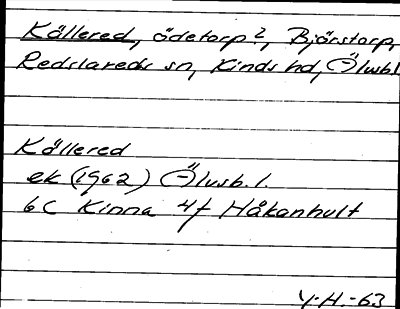 Källered, ödetorp 2, Björstorp,
Redslareds sn, Kinds hd, Älvsb.l
Källered
ek (1962) Älvsb. l.
6C Kinna 4f Håkanhult
Y.H.-63